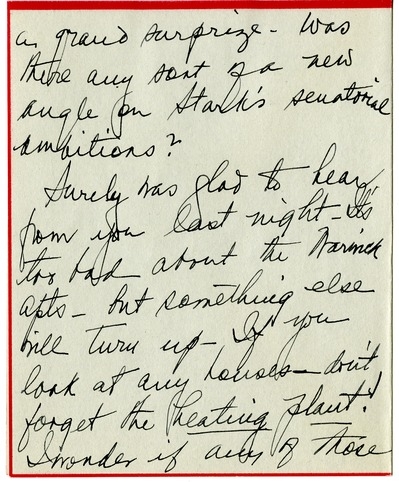 a grand surprize - Was
there any sort of a new
angle on Stark's senatorial
ambitions?
Surely was glad to hear
from you last night - It's
too bad about the Warwick
apts - but something else
will turn up - If you
look at any houses - don't
forget the heating plant!
I wonder if any of those